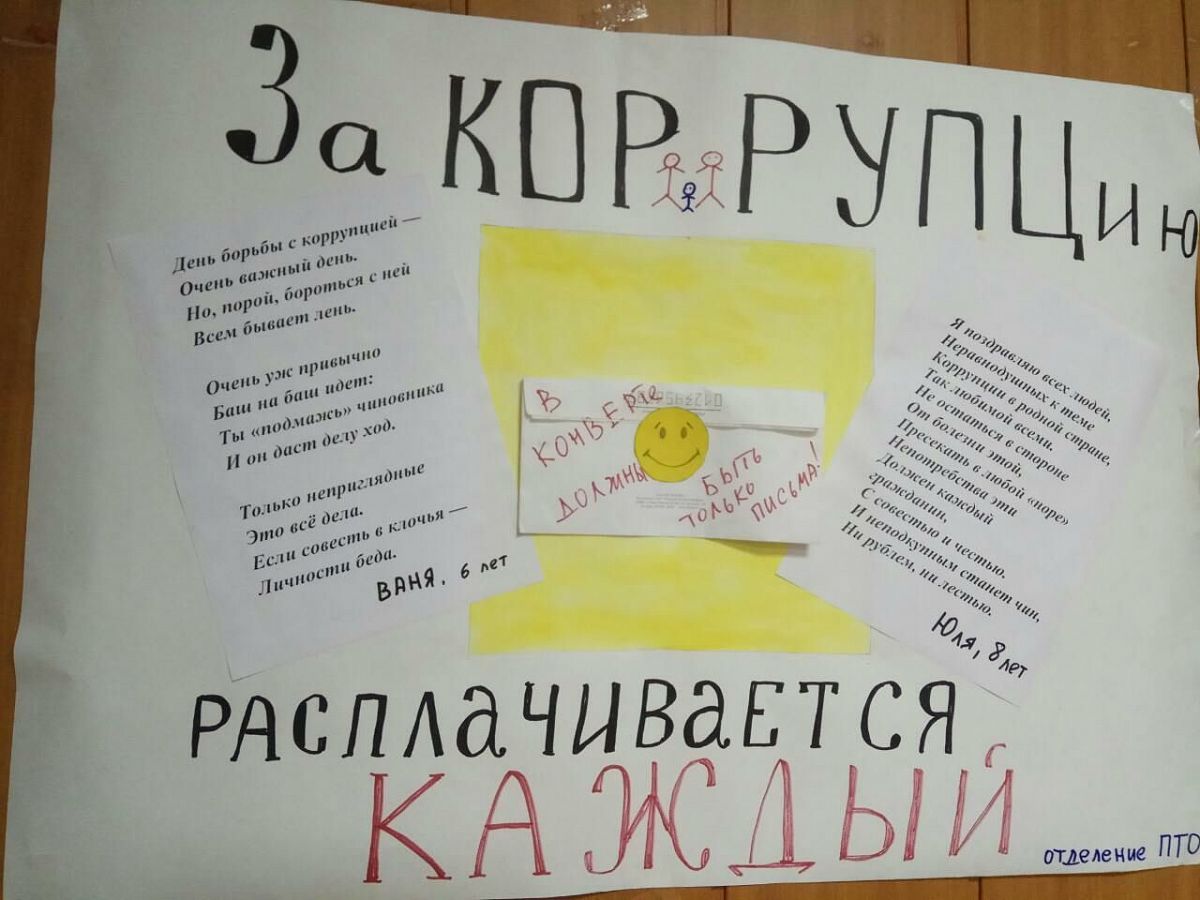 За КОРРУПЦию
День борьбы с коррупцией —
Очень важный день.
Но, порой, бороться с ней
Всем бывает лень.
Очень уж привычно
Баш на баш идет:
Ты «подмажь» чиновника
И он даст делу ход.
Только неприглядные
Это всё дела.
Если совесть в клочья —
Личности беда.
ВАНЯ, 6 лет
В
КОНВЕРТЕ
ДОЛЖНЫ
БЫТЬ
ТОЛЬКО
ПИСЬМА!
Я поздравляю всех людей,
Неравнодушных к теме
Коррупции в родной стране,
Так любимой всеми.
Не остаться в стороне
От болезни этой,
Пресекать в любой «норе»
Непотребства эти
Должен каждый
гражданин,
С совестью и честью.
И неподкупным станет чин,
Ни рублем, ни лестью.
Юля, 8 лет
РАСПЛАЧИВАЕТСЯ
КАЖДЫЙ
отделение ПТО